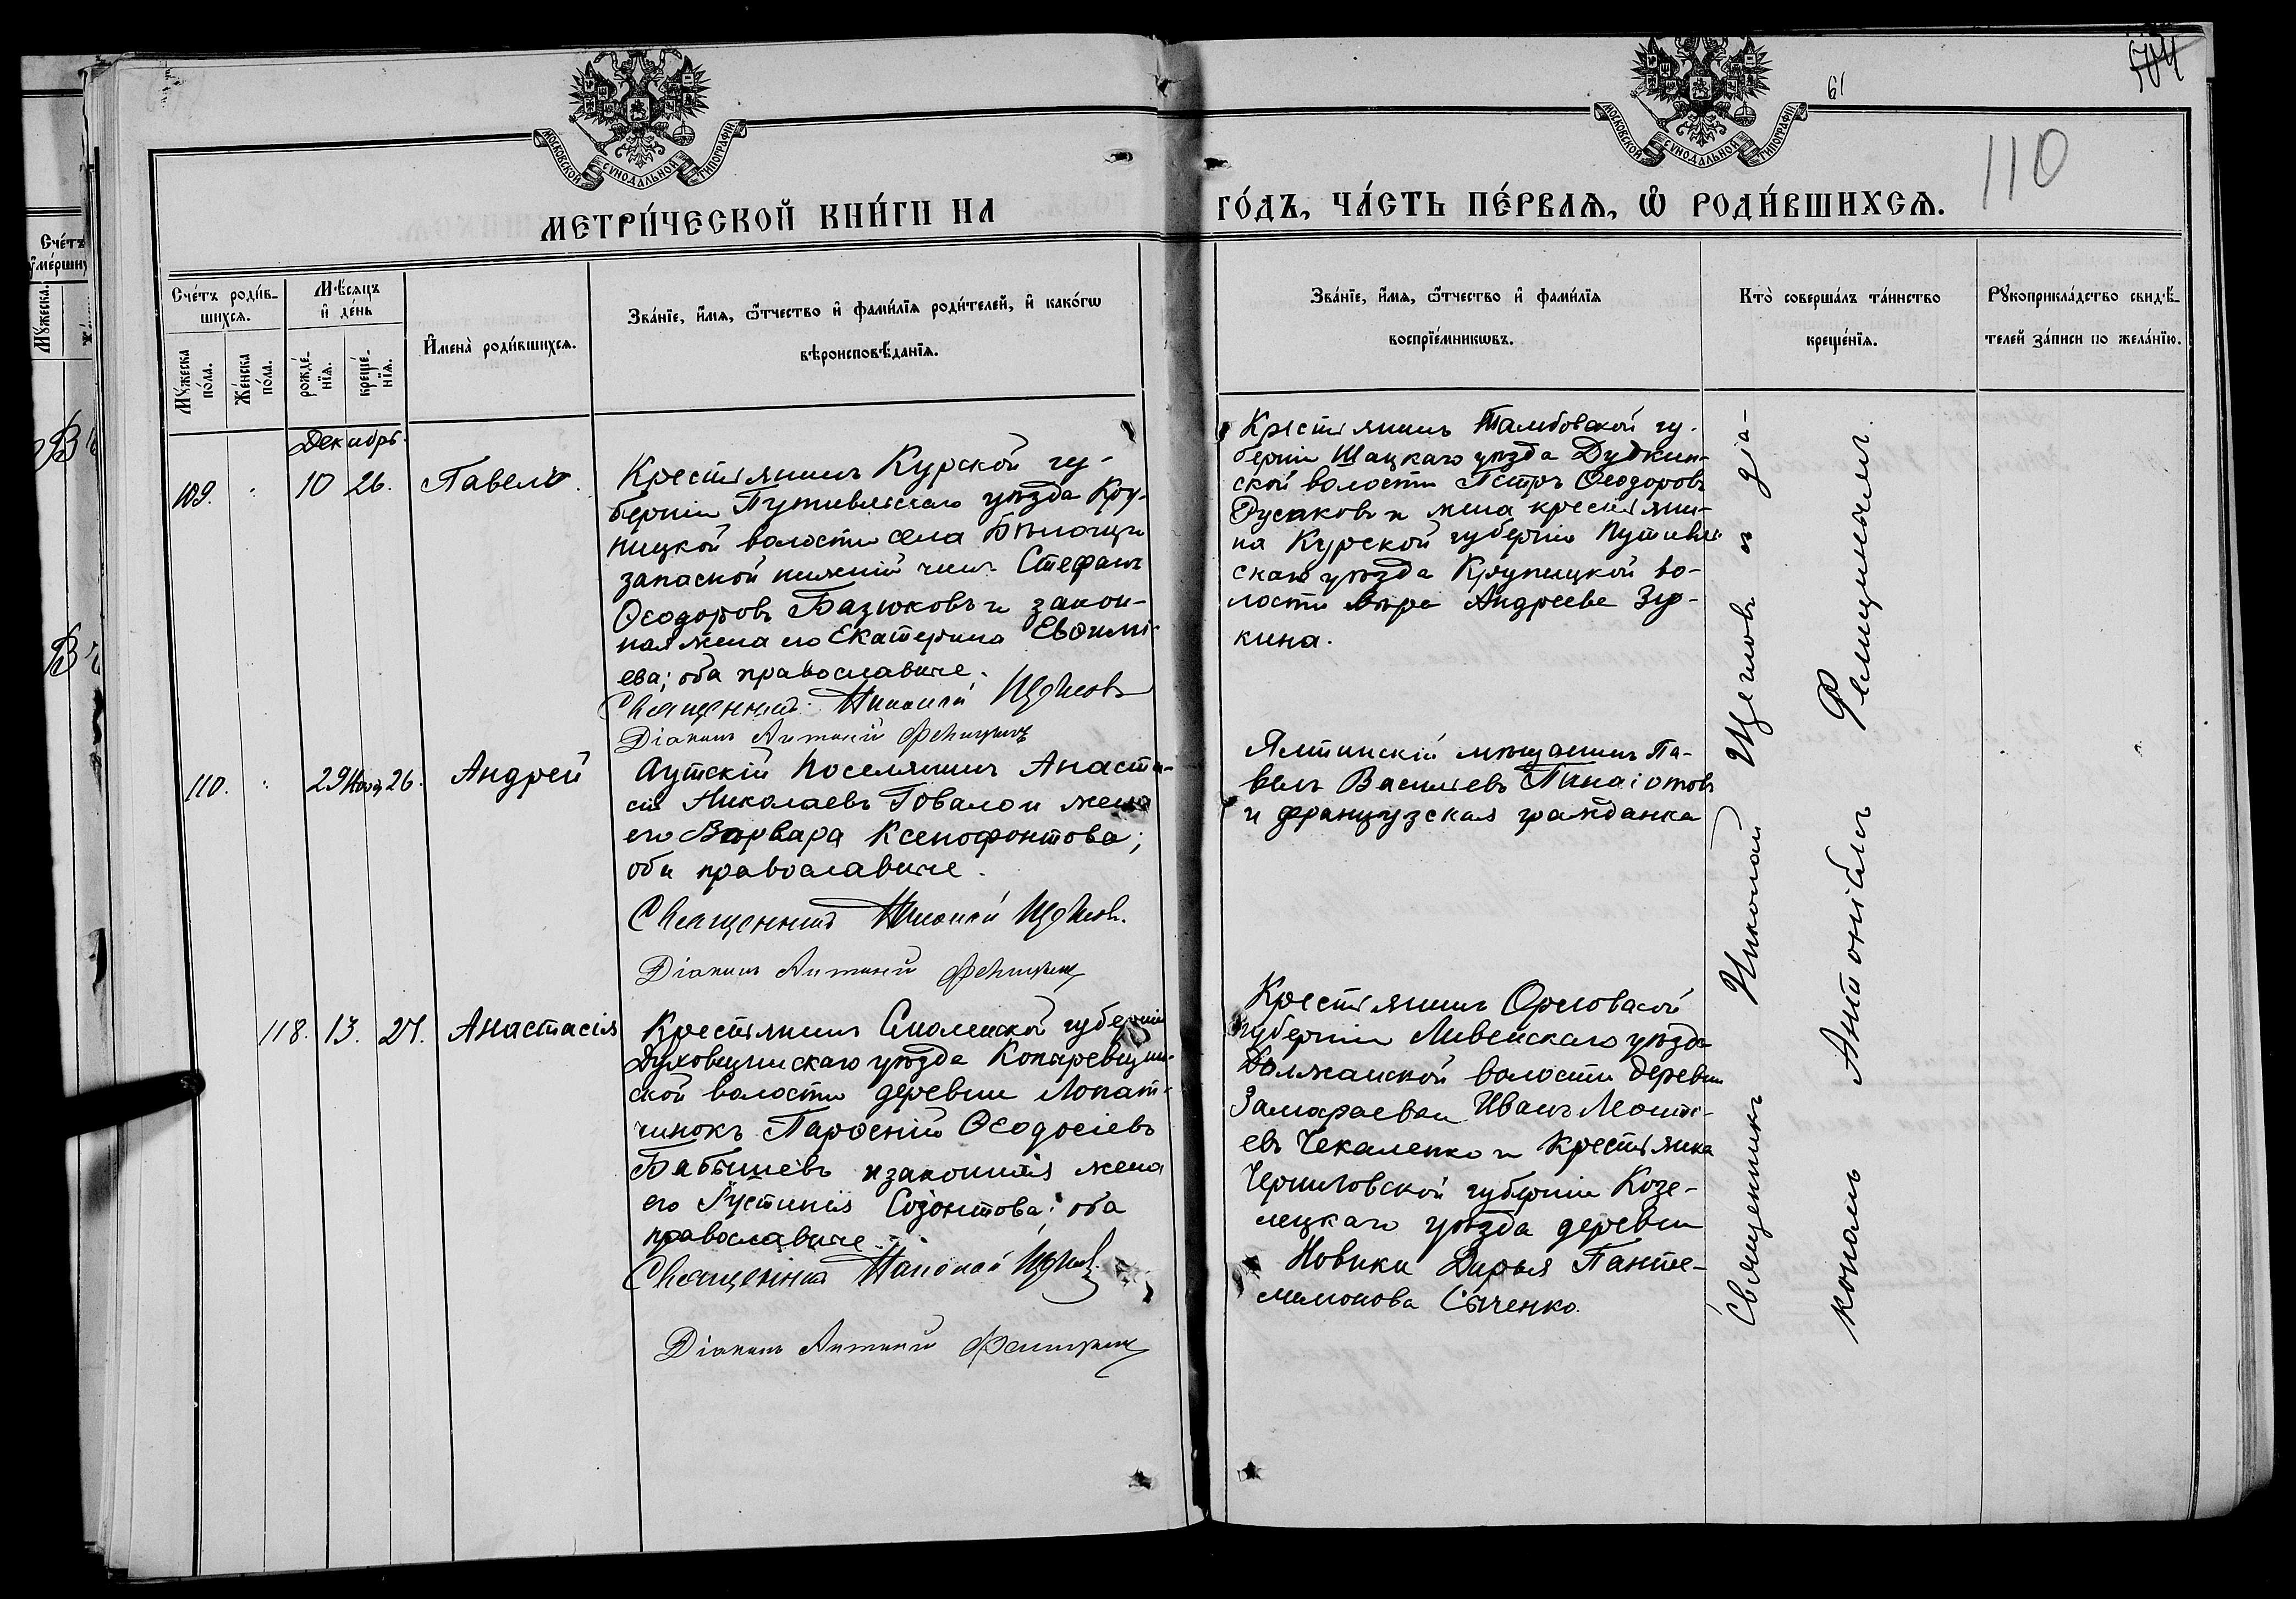 МОСКОВСКОЙ СУНОДАЛЬНОЙ ТИПОГРАФІИ
МОСКОВСКОЙ СУНОДАЛЬНОЙ ТИПОГРАФІИ
61
504
110
МЕТРИ́ЧЕСКОЙ КНИ́ГИ НА
ГО́ДЪ, ЧА́СТЬ ПЕ́РВАѦ, Ѡ РОДИ́ВШИХСѦ.
Сче́тъ роди́в-
шихсѧ.
Мꙋ́жеска по́ла.
Же́нска по́ла.
Мѣ́сѧцъ
и҆ де́нь
рожде́-
нїѧ.
креще́-
нїѧ.
И҆мена̀ роди́вшихсѧ.
Зва́нїе, и҆́мѧ, ѻ҆́тчество и҆ фами́лїѧ роди́телей, и҆ како́гѡ
вѣроисповѣ́данїѧ.
Зва́нїе, и҆́мѧ, ѻ҆́тчество и҆ фами́лїѧ
воспрїе́мникѡвъ.
Кто̀ соверша́лъ та́инство
креще́нїѧ.
Рꙋкоприкла́дство свидѣ́-
телей за́писи по жела́нїю.
Декабрь
109. 10 26. Павелъ.
Крестьянинъ Курской гу-
берніи Путивльскаго уѣзда Кру-
пицкой волости села
запасной нижній чинъ Стефанъ
Ѳеодоровъ Базюковъ и закон-
ная жена его Екатерина Евѳимі-
ева; оба православные.
Священникъ Николай Щегловъ
Діаконъ Антоній Фелицынъ
Крестьянинъ Тамбовской гу-
берніи Шацкаго уѣзда Дудкин-
ской волости Петръ Ѳеодоровъ
Русаковъ и жена крестьяни-
на Курской губерніи Путивль-
скаго уѣзда Крупицкой во-
лости Вѣра Андреева Зю-
кина.
110. 29 Нояб. 26. Андрей
Аутскій поселянинъ Анаста-
сій Николаевъ Говало и жена
его Варвара Ксенофонтова;
оба православные.
Священникъ Николай Щегловъ.
Діаконъ Антоній Фелицынъ
Ялтинскій мѣщанинъ Па-
велъ Васильевъ Панаіотовъ
и французская гражданка
118. 13. 27. Анастасія
Крестьянинъ Смоленской губерніи
Духовщинскаго уѣзда Копыревщин-
ской волости деревни Лопат-
чинокъ Парѳеній Ѳеодосіевъ
Бабышевъ и законная жена
его Іустинія Созонтова; оба
православные.
Священникъ Николай Щегловъ
Діаконъ Антоній Фелицынъ
Крестьянинъ Орловской
губерніи Ливенскаго уѣзда
Должанской волости деревни
Замараевой Иванъ
евъ Чекаленко и крестьянка
Черниговской губерніи Козе-
лецкаго уѣзда деревни
Новики Дарья Панте-
леимонова Сыченко.
Священникъ Николай Щегловъ и діа-
кономъ Антоніемъ Фелицынымъ.